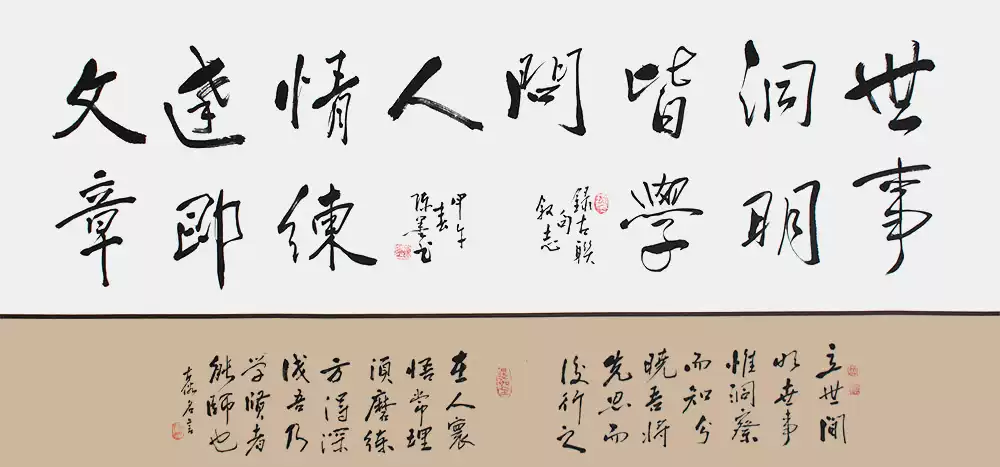 世事
洞明
皆學
問
録古聯
句
叙志
人
甲午
春
陈墨书
情練
達即
文章
立世间
世事
惟洞察
而知兮
晓吾将
先思而
後行之
在人寰
悟常理
須磨練
方得深
浅吾乃
学贤者
能師也
名言